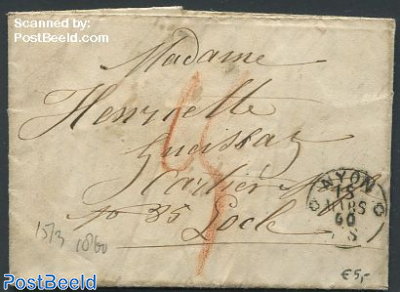 Scanned by
PostBeeld.com
Madame
Henriette
No 35
Locle
NYON
15
MARS
60
S
15/3 1860
€5,-
PostBeeld
.com